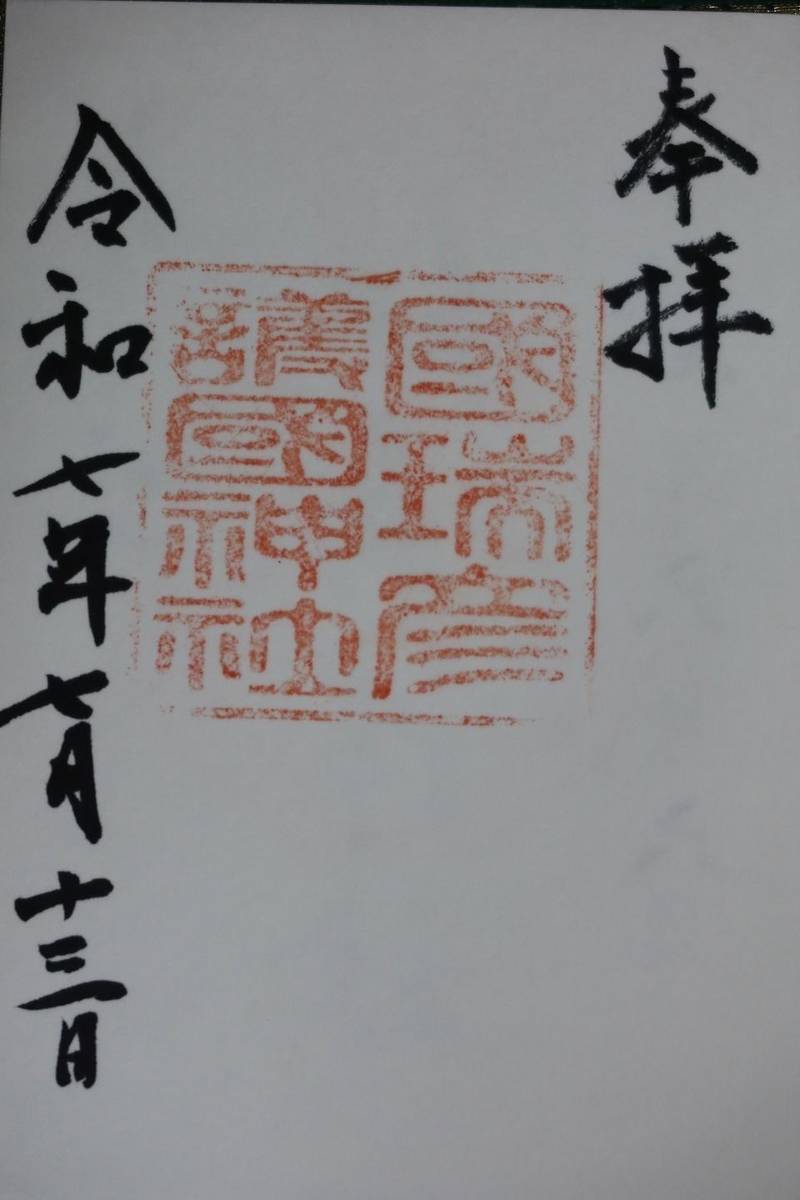 奉拝
國瑞彦
護國神社
令和七年七月十三日